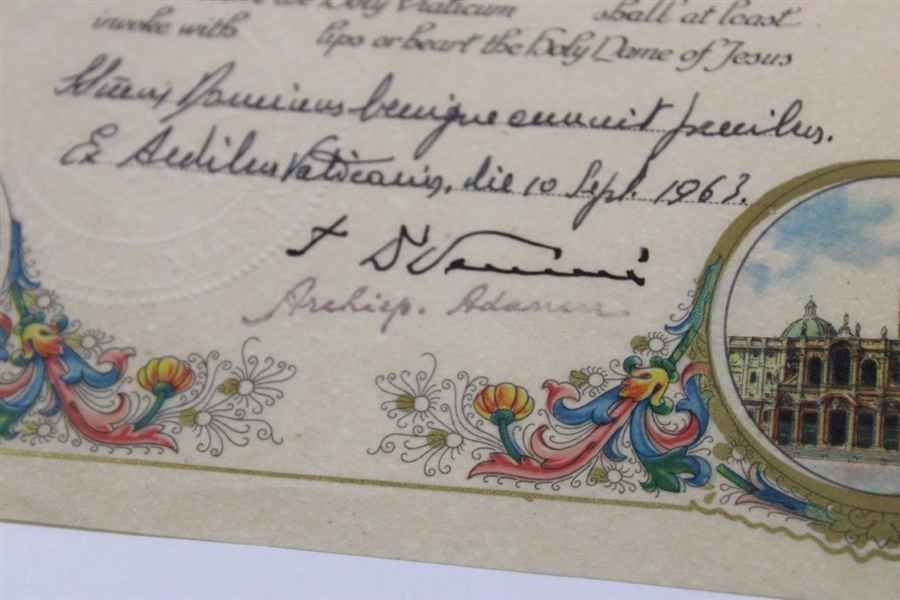 the Holy Viaticum shall at least
invoke with lips or heart the Holy Name of Jesus
SSmus Dominus benigne annuit precibus.
Ex Aedibus Vaticanis, die 10 Sept. 1963.
† D Venini
Archiep. Adanen